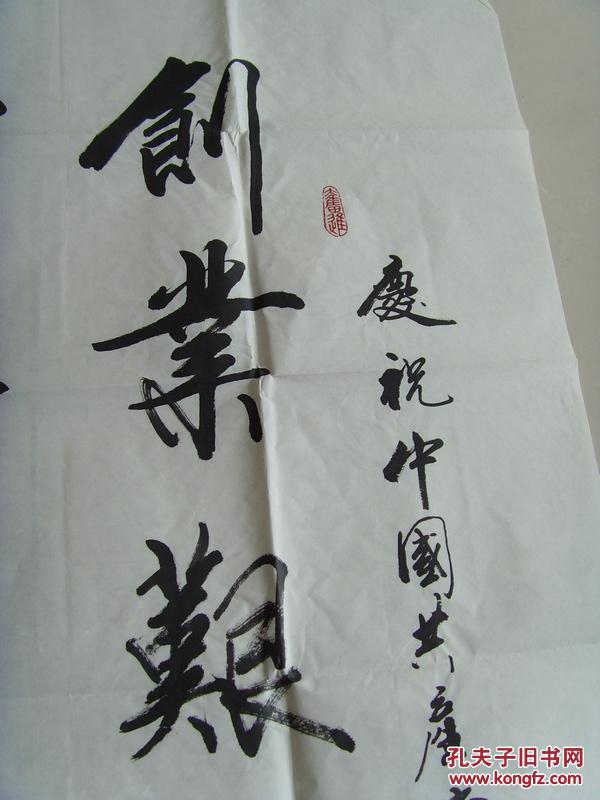 慶祝中國共产
創業艱
奮進
孔夫子旧书网
www.kongfz.com